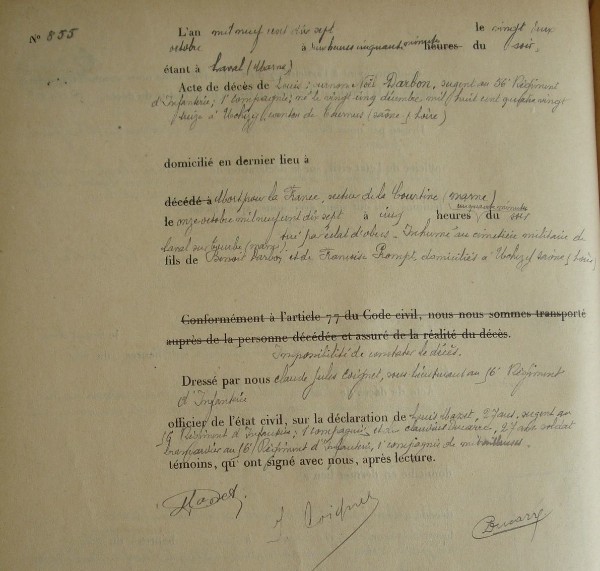 N° 855
L'an mil neuf cent dix sept le vingt deux
octobre à heures cinquante minutes heures du soir
étant à Laval (Marne)
Acte de décès de Louis, Marion Noël Darbon, sergent au 56e Régiment
d'Infanterie, 1e compagnie; né le vingt cinq décembre mil huit cent quatre vingt
treize à Uchizy, canton de Tournus (Saône & Loire)
domicilié en dernier lieu à
décédé à Mort pour la France, secteur de la Courtine (Marne)
le onze octobre mil neuf cent dix sept à cinq heures cinquante minutes du soir
tué par éclat d'obus - Inhumé au cimetière militaire de
Laval sur Tourbe (Marne)
fils de Benoit Darbon et de Françoise domiciliés à Uchizy Saône & Loire
Conformément à l'article 77 du Code civil, nous nous sommes transporté
auprès de la personne décédée et assuré de la réalité du décès.
Impossibilité de constater le décès.
Dressé par nous Claude Jules Coignet, sous lieutenant au 56e Régiment
d'Infanterie
officier de l'état civil, sur la déclaration de Louis 27 ans, sergent au
56e Régiment d'Infanterie, 1e compagnie et de 27 ans soldat
au 56e Régiment d'Infanterie, 1e compagnie
témoins, qu' ont signé avec nous, après lecture.
J Coignet